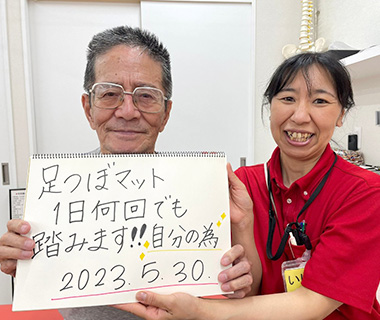 足つぼマット
1日何回でも
踏みます!!自分の為
2023.5.30.